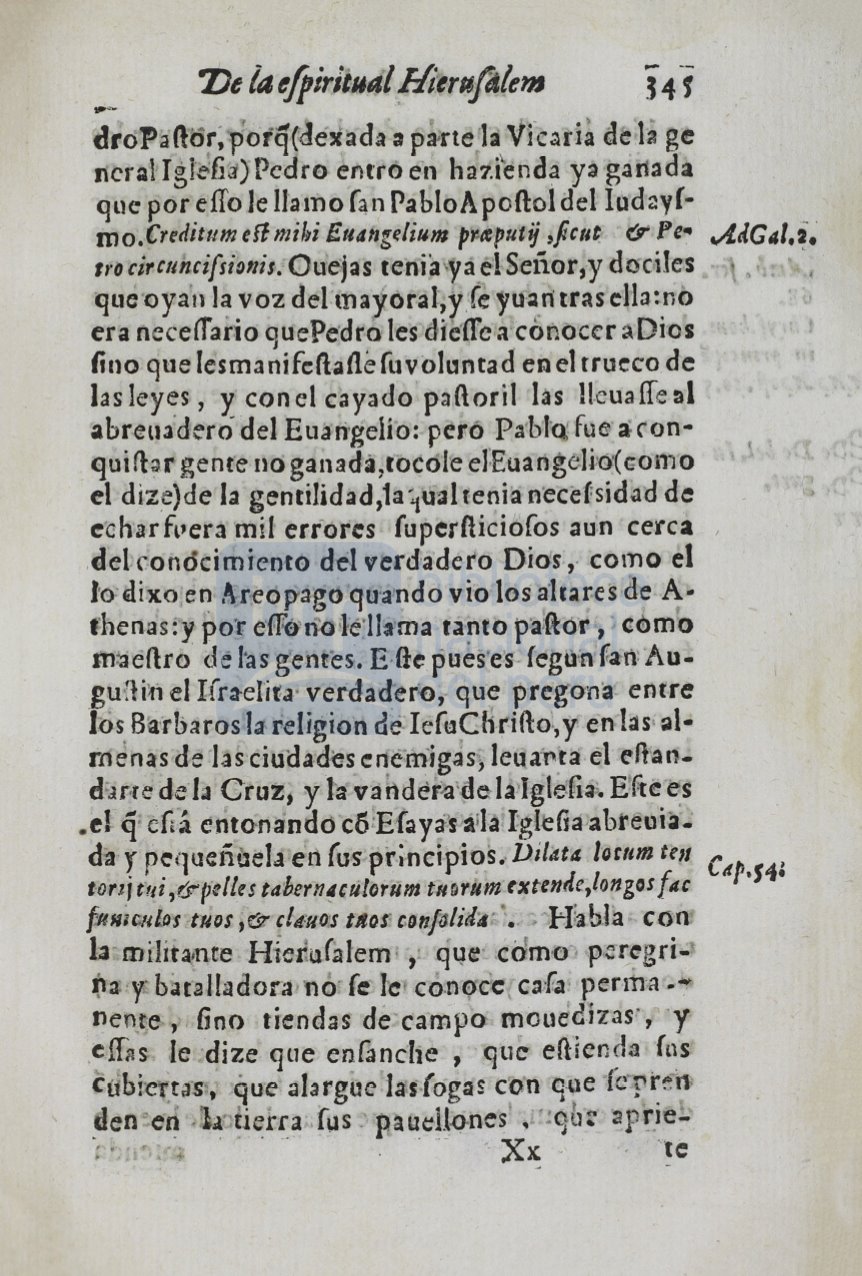 De la eſpiritual Hieruſalem 345
dro Paſtor, porq̃ (dexada a parte la Vicaria de la ge
neral Igleſia) Pedro entro en hazienda ya ganada
que por eſſo le llamo ſan Pablo Apoſtol del Iudayſ-
mo. Creditum eſt mihi Euangelium præputij, ſicut & Pe-
AdGal.2.
tro circunciſsionis. Ouejas tenia ya el Señor, y dociles
que oyan la voz del mayoral, y ſe yuan tras ella: no
era neceſſario que Pedro les dieſſe a conocer a Dios
ſino que les manifeſtaſſe ſu voluntad en el trueco de
las leyes, y con el cayado paſtoril las lleuaſſe al
abreuadero del Euangelio: pero Pablo fue a con-
quiſtar gente no ganada, tocole el Euangelio (como
el dize) de la gentilidad, la qual tenia neceſsidad de
echar fuera mil errores ſuperſticioſos aun cerca
del conocimiento del verdadero Dios, como el
lo dixo en Areopago quando vio los altares de A-
thenas: y por eſſo no le llama tanto paſtor, como
maeſtro de las gentes. Eſte pues es ſegun ſan Au-
guſtin el Iſraelita verdadero, que pregona entre
los Barbaros la religion de Ieſu Chriſto, y en las al-
menas de las ciudades enemigas, leuanta el eſtan-
darte de la Cruz, y la vandera de la Igleſia. Eſte es
el q̃ eſtá entonando cõ Eſayas a la Igleſia abreuia-
da y pequeñuela en ſus principios. Dilata locum ten
Cap.54.
torij tui, & pelles tabernaculorum tuorum extende, longos fac
funiculos tuos, & clauos tuos conſolida. Habla con
la militante Hieruſalem, que como peregri-
na y batalladora no ſe le conoce caſa perma-
nente, ſino tiendas de campo mouedizas, y
eſſas le dize que enſanche, que eſtienda ſus
cubiertas, que alargue las ſogas con que ſe pren
den en la tierra ſus pauellones, que aprie-
Xx te